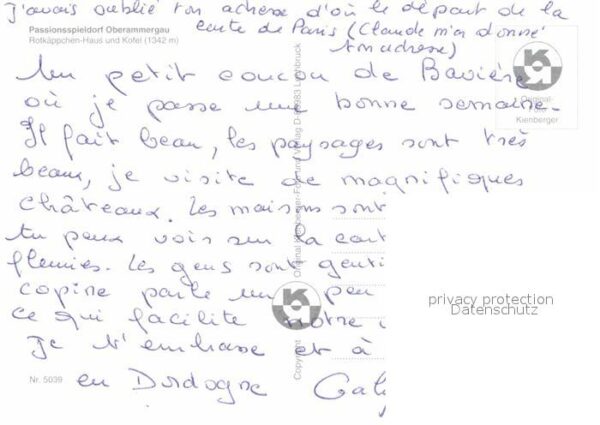 j'avais oublié ton adresse d'où le départ de la
carte de Paris (Claude m'a donné
ton adresse)
Passionsspieldorf Oberammergau
Rotkäppchen-Haus und Kofel (1342 m)
Un petit coucou de Bavière
où je passe une bonne semaine.
Il fait beau, les paysages sont très
beaux, je visite de magnifiques
châteaux. Les maisons sont
tu peux voir sur la cart
fleuries. Les gens sont genti
copine parle un peu
ce qui facilite notre
Je t'embrasse et à
en Dordogne
Nr. 5039
Copyright
Original Kienberger-Foto und Verlag
Original-
Kienberger
privacy protection
Datenschutz